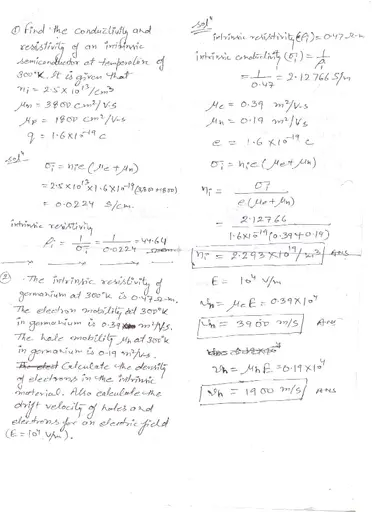 ① Find the conductivity and
resistivity of an intrinsic
semiconductor at temperature of
300°K. It is given that
ni = 2.5 X 10¹³/cm³
μn = 3800 cm²/V.s
μp = 1800 cm²/V.s
q = 1.6 X 10⁻¹⁹ C
solⁿ
σi = nie (μe + μn)
= 2.5 X 10¹³ X 1.6 X 10⁻¹⁹ (3800 + 1800)
= 0.0224 S/cm.
intrinsic resistivity
ρi = 1/σi = 1/0.0224 = 44.64
② The intrinsic resistivity of
germanium at 300°K is 0.47 Ω-m.
The electron mobility at 300°K
in germanium is 0.39 m²/V.s.
The hole mobility μh at 300°K
in germanium is 0.19 m²/V.s.
Calculate the density
of electrons in the intrinsic
material. Also calculate the
drift velocity of holes and
electrons for an electric field
(E = 10⁴ V/m).
solⁿ
intrinsic resistivity (ρi) = 0.47 Ω-m
intrinsic conductivity (σi) = 1/ρi
= 1/0.47 = 2.12766 S/m
μe = 0.39 m²/V.s
μh = 0.19 m²/V.s
e = 1.6 X 10⁻¹⁹ C
σi = nie (μe + μh)
ni = σi / e(μe + μh)
= 2.12766 / 1.6 X 10⁻¹⁹ (0.39 + 0.19)
ni = 2.293 X 10¹⁹/m³ Ans
E = 10⁴ V/m
vn = μn E = 0.39 X 10⁴
vn = 3900 m/s Ans
vh = μh E = 0.19 X 10⁴
vh = 1900 m/s Ans